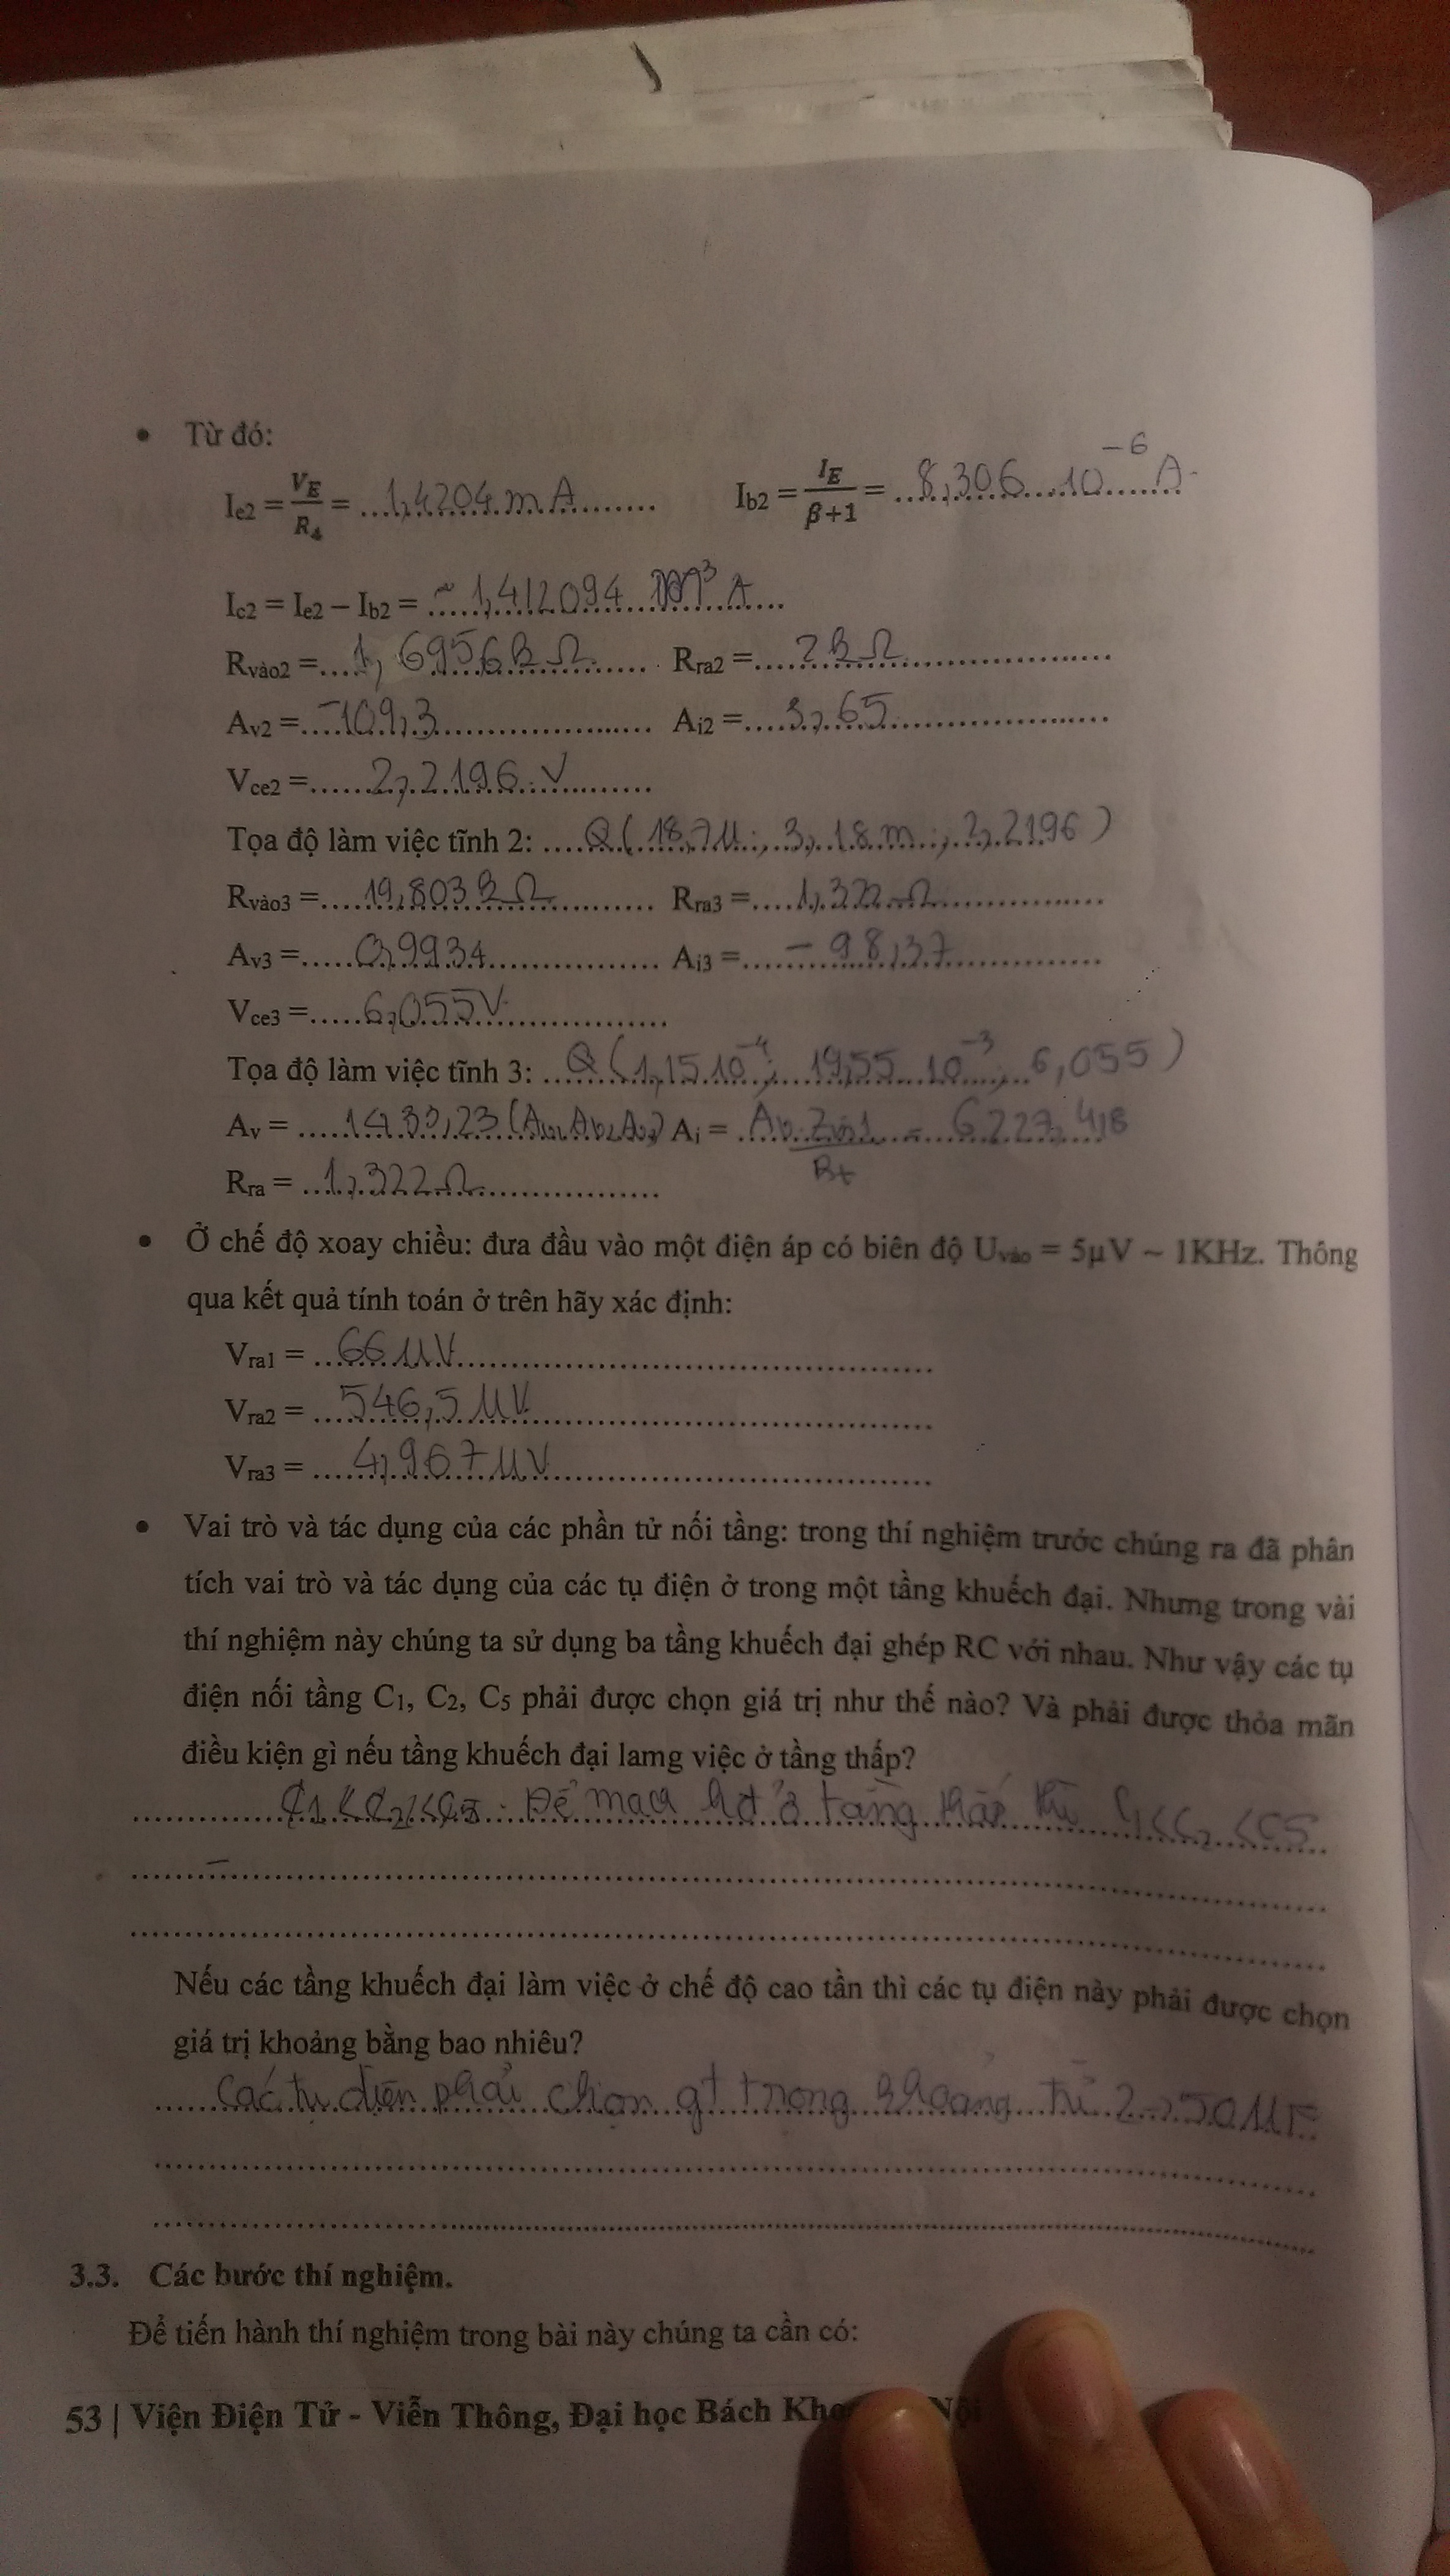 • Từ đó:
Ie2 = VE/R4 = ...1,4204 mA........ Ib2 = IE/(β+1) = ...8,306...10^-6 A
Ic2 = Ie2 – Ib2 = ...1,412094 ... A...
Rvào2 =...1,6956kΩ...... Rra2 =....2kΩ..............
Av2 =....-109,3.............. Ai2 =....3,65..............
Vce2 =......2,2196 V.........
Tọa độ làm việc tĩnh 2: ....Q( 18,7µ ; 3,18m ; 2,2196 )
Rvào3 =....19,803kΩ.......... Rra3 =....1,322Ω..............
Av3 =.....0,9934................ Ai3 =....- 98,37..............
Vce3 =.....6,055V................
Tọa độ làm việc tĩnh 3: ...Q (1,15 10^-4; 19,55 10^-3; 6,055 )
Av = .....1433,23 (Av1 Av2 Av3) Ai = ... = 6227,418
Rra = ...1,322Ω................
• Ở chế độ xoay chiều: đưa đầu vào một điện áp có biên độ Uvào = 5µV ~ 1KHz. Thông
qua kết quả tính toán ở trên hãy xác định:
Vra1 = ...66µV..............................
Vra2 = ...546,5 µV..............................
Vra3 = ....4,967 µV..............................
• Vai trò và tác dụng của các phần tử nối tầng: trong thí nghiệm trước chúng ra đã phân
tích vai trò và tác dụng của các tụ điện ở trong một tầng khuếch đại. Nhưng trong vài
thí nghiệm này chúng ta sử dụng ba tầng khuếch đại ghép RC với nhau. Như vậy các tụ
điện nối tầng C1, C2, C5 phải được chọn giá trị như thế nào? Và phải được thỏa mãn
điều kiện gì nếu tầng khuếch đại lamg việc ở tầng thấp?
C1<C2<C5. Để mạch hđ ở tầng thấp thì C1<C2<C5
Nếu các tầng khuếch đại làm việc ở chế độ cao tần thì các tụ điện này phải được chọn
giá trị khoảng bằng bao nhiêu?
Các tụ điện phải chọn gt trong khoảng từ 2→50µF
3.3. Các bước thí nghiệm.
Để tiến hành thí nghiệm trong bài này chúng ta cần có:
53 | Viện Điện Tử - Viễn Thông, Đại học Bách Kho Nội